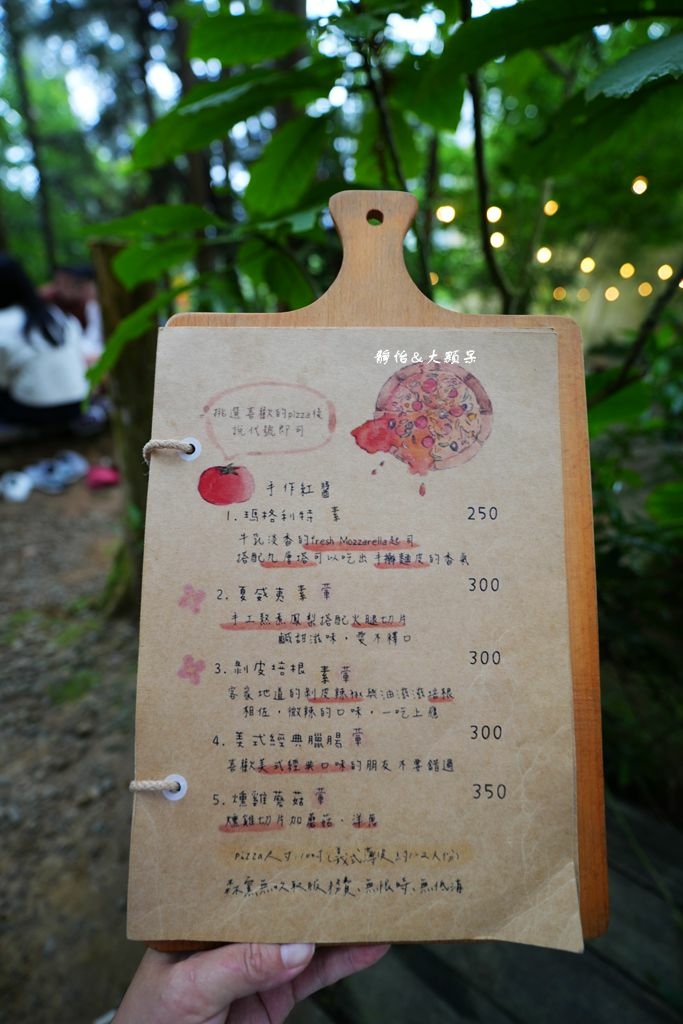 靜怡&大顆呆
挑選喜歡的pizza後
說代號即可
手作紅醬
1. 瑪格利特 素 250
牛乳淡香的fresh Mozzarella起司
搭配九層塔可以吃出手擀麵皮的香氣
2. 夏威夷 素 葷 300
手工熬煮鳳梨搭配火腿切片
鹹甜滋味,愛不釋口
3. 剝皮培根 素 葷 300
客家地道的剝皮辣椒與油滋滋培根
相佐,微辣的口味,一吃上癮
4. 美式經典臘腸 葷 300
喜歡美式經典口味的朋友不要錯過
5. 燻雞蘑菇 葷 350
燻雞切片加蘑菇、洋蔥
pizza尺寸:10吋(義式薄皮約1-2人份)
森窯無收取服務費、無限時、無低消